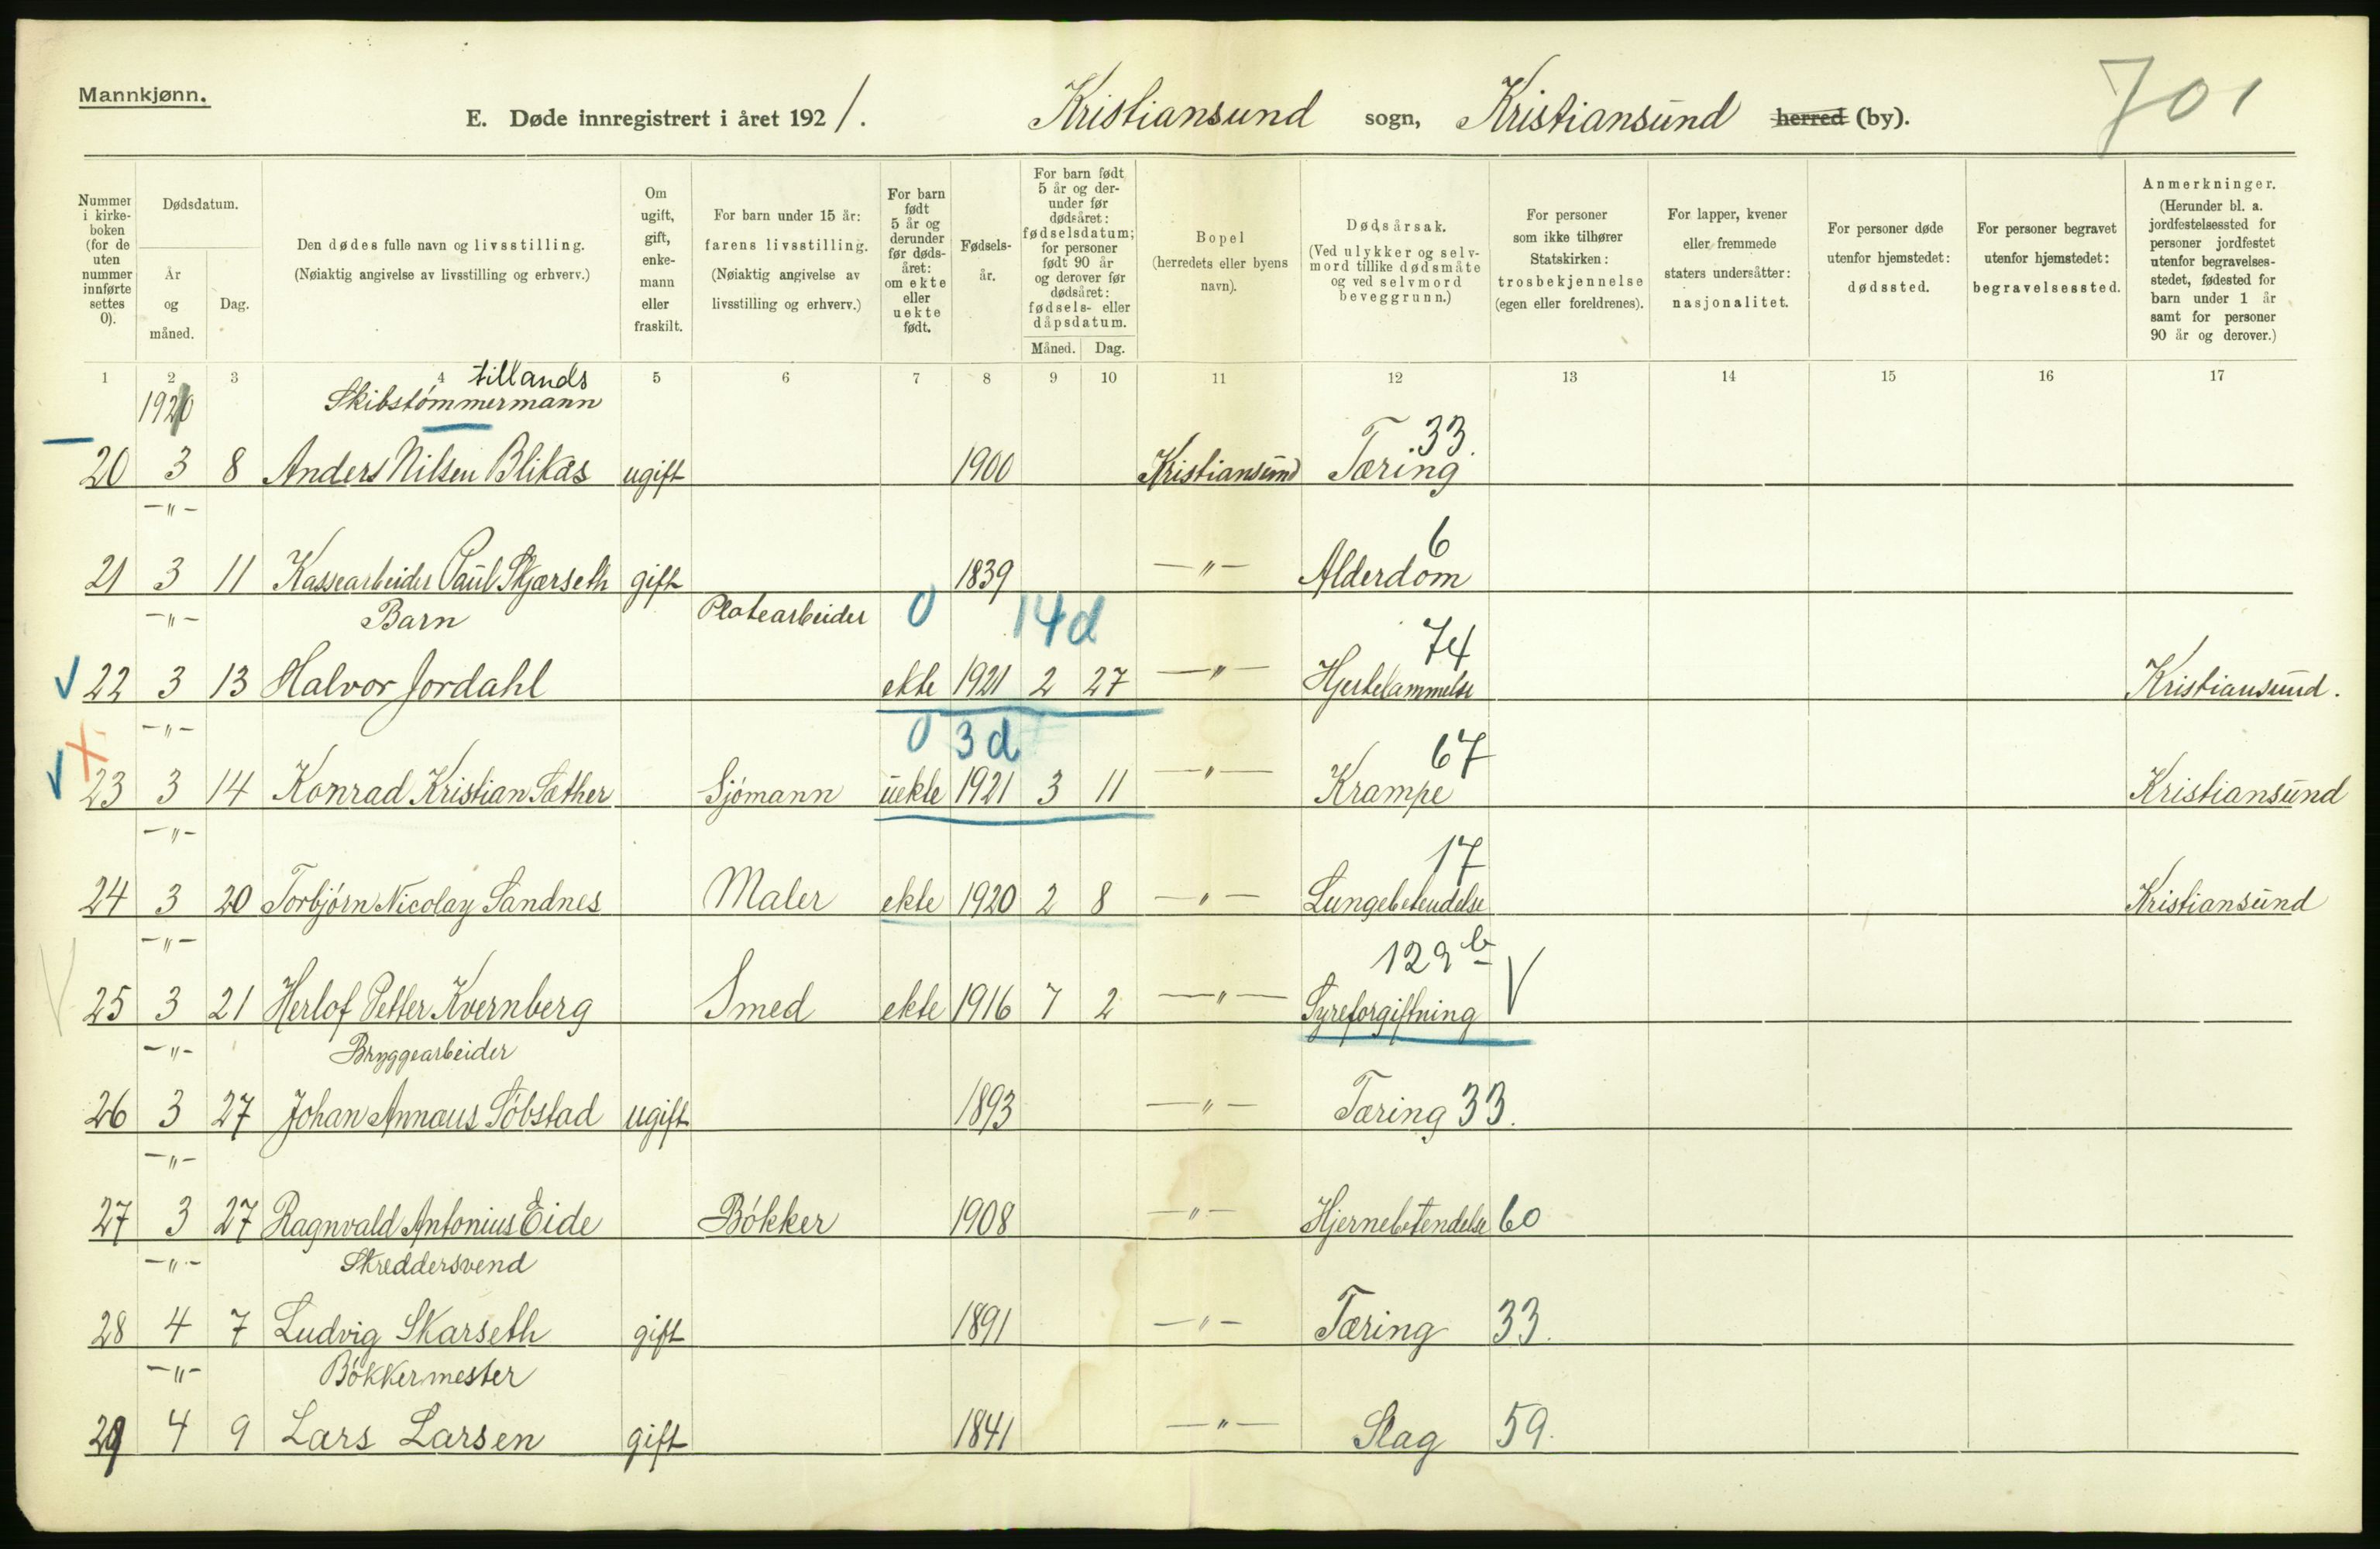 Mannkjønn.
E. Døde innregistrert i året 1921. Kristiansund sogn, Kristiansund herred (by). 701
Nummer i kirke-boken (for de uten nummer innførte settes 0).
Dødsdatum.
År og måned.
Dag.
Den dødes fulle navn og livsstilling.
(Nøiaktig angivelse av livsstilling og erhverv.)
Om ugift, gift, enke-mann eller fraskilt.
For barn under 15 år: farens livsstilling. (Nøiaktig angivelse av livsstilling og erhverv.)
For barn født 5 år og derunder før døds-året: om ekte eller uekte født.
Fødsels-år.
For barn født 5 år og der-under før dødsåret: fødselsdatum; for personer født 90 år og derover før dødsåret: fødsels- eller dåpsdatum.
Måned. Dag.
Bopel (herredets eller byens navn).
Dødsårsak. (Ved ulykker og selv-mord tillike dødsmåte og ved selvmord beveggrunn.)
For personer som ikke tilhører Statskirken: trosbekjennelse (egen eller foreldrenes).
For lapper, kvener eller fremmede staters undersåtter: nasjonalitet.
For personer døde utenfor hjemstedet: dødssted.
For personer begravet utenfor hjemstedet: begravelsessted.
Anmerkninger. (Herunder bl. a. jordfestelsessted for personer jordfestet utenfor begravelses-stedet, fødested for barn under 1 år samt for personer 90 år og derover.)
1 2 3 4 5 6 7 8 9 10 11 12 13 14 15 16 17
tillands
Skibstömmermann
20 3 8 Anders Nilsen Blikås ugift 1900 Kristiansund Tæring 33.
—"—
21 3 11 Kassearbeider Paul Skjærseth gift 1839 —"— Alderdom 6
—"— Barn Platearbeider 0 14d
22 3 13 Halvor Jordahl ekte 1921 2 27 —"— Hjertelammelse 74 Kristiansund.
—"— 0 3d
23 3 14 Konrad Kristian Sæther Sjömann uekte 1921 3 11 —"— Krampe 67 Kristiansund
—"—
24 3 20 Torbjörn Nicolay Sandnes Maler ekte 1920 2 8 —"— Lungebetendelse 17 Kristiansund
—"—
25 3 21 Herlof Petter Kvernberg Smed ekte 1916 7 2 —"— Syreforgiftning 129 b
—"— Bryggearbeider
26 3 27 Johan Annæus Söbstad ugift 1893 —"— Tæring 33.
—"—
27 3 27 Ragnvald Antonius Eide Bökker 1908 —"— Hjernebetendelse 60
—"— Skreddersvend
28 4 7 Ludvig Skarseth gift 1891 —"— Tæring 33.
—"— Bökkermester
29 4 9 Lars Larsen gift 1841 —"— Slag 59.